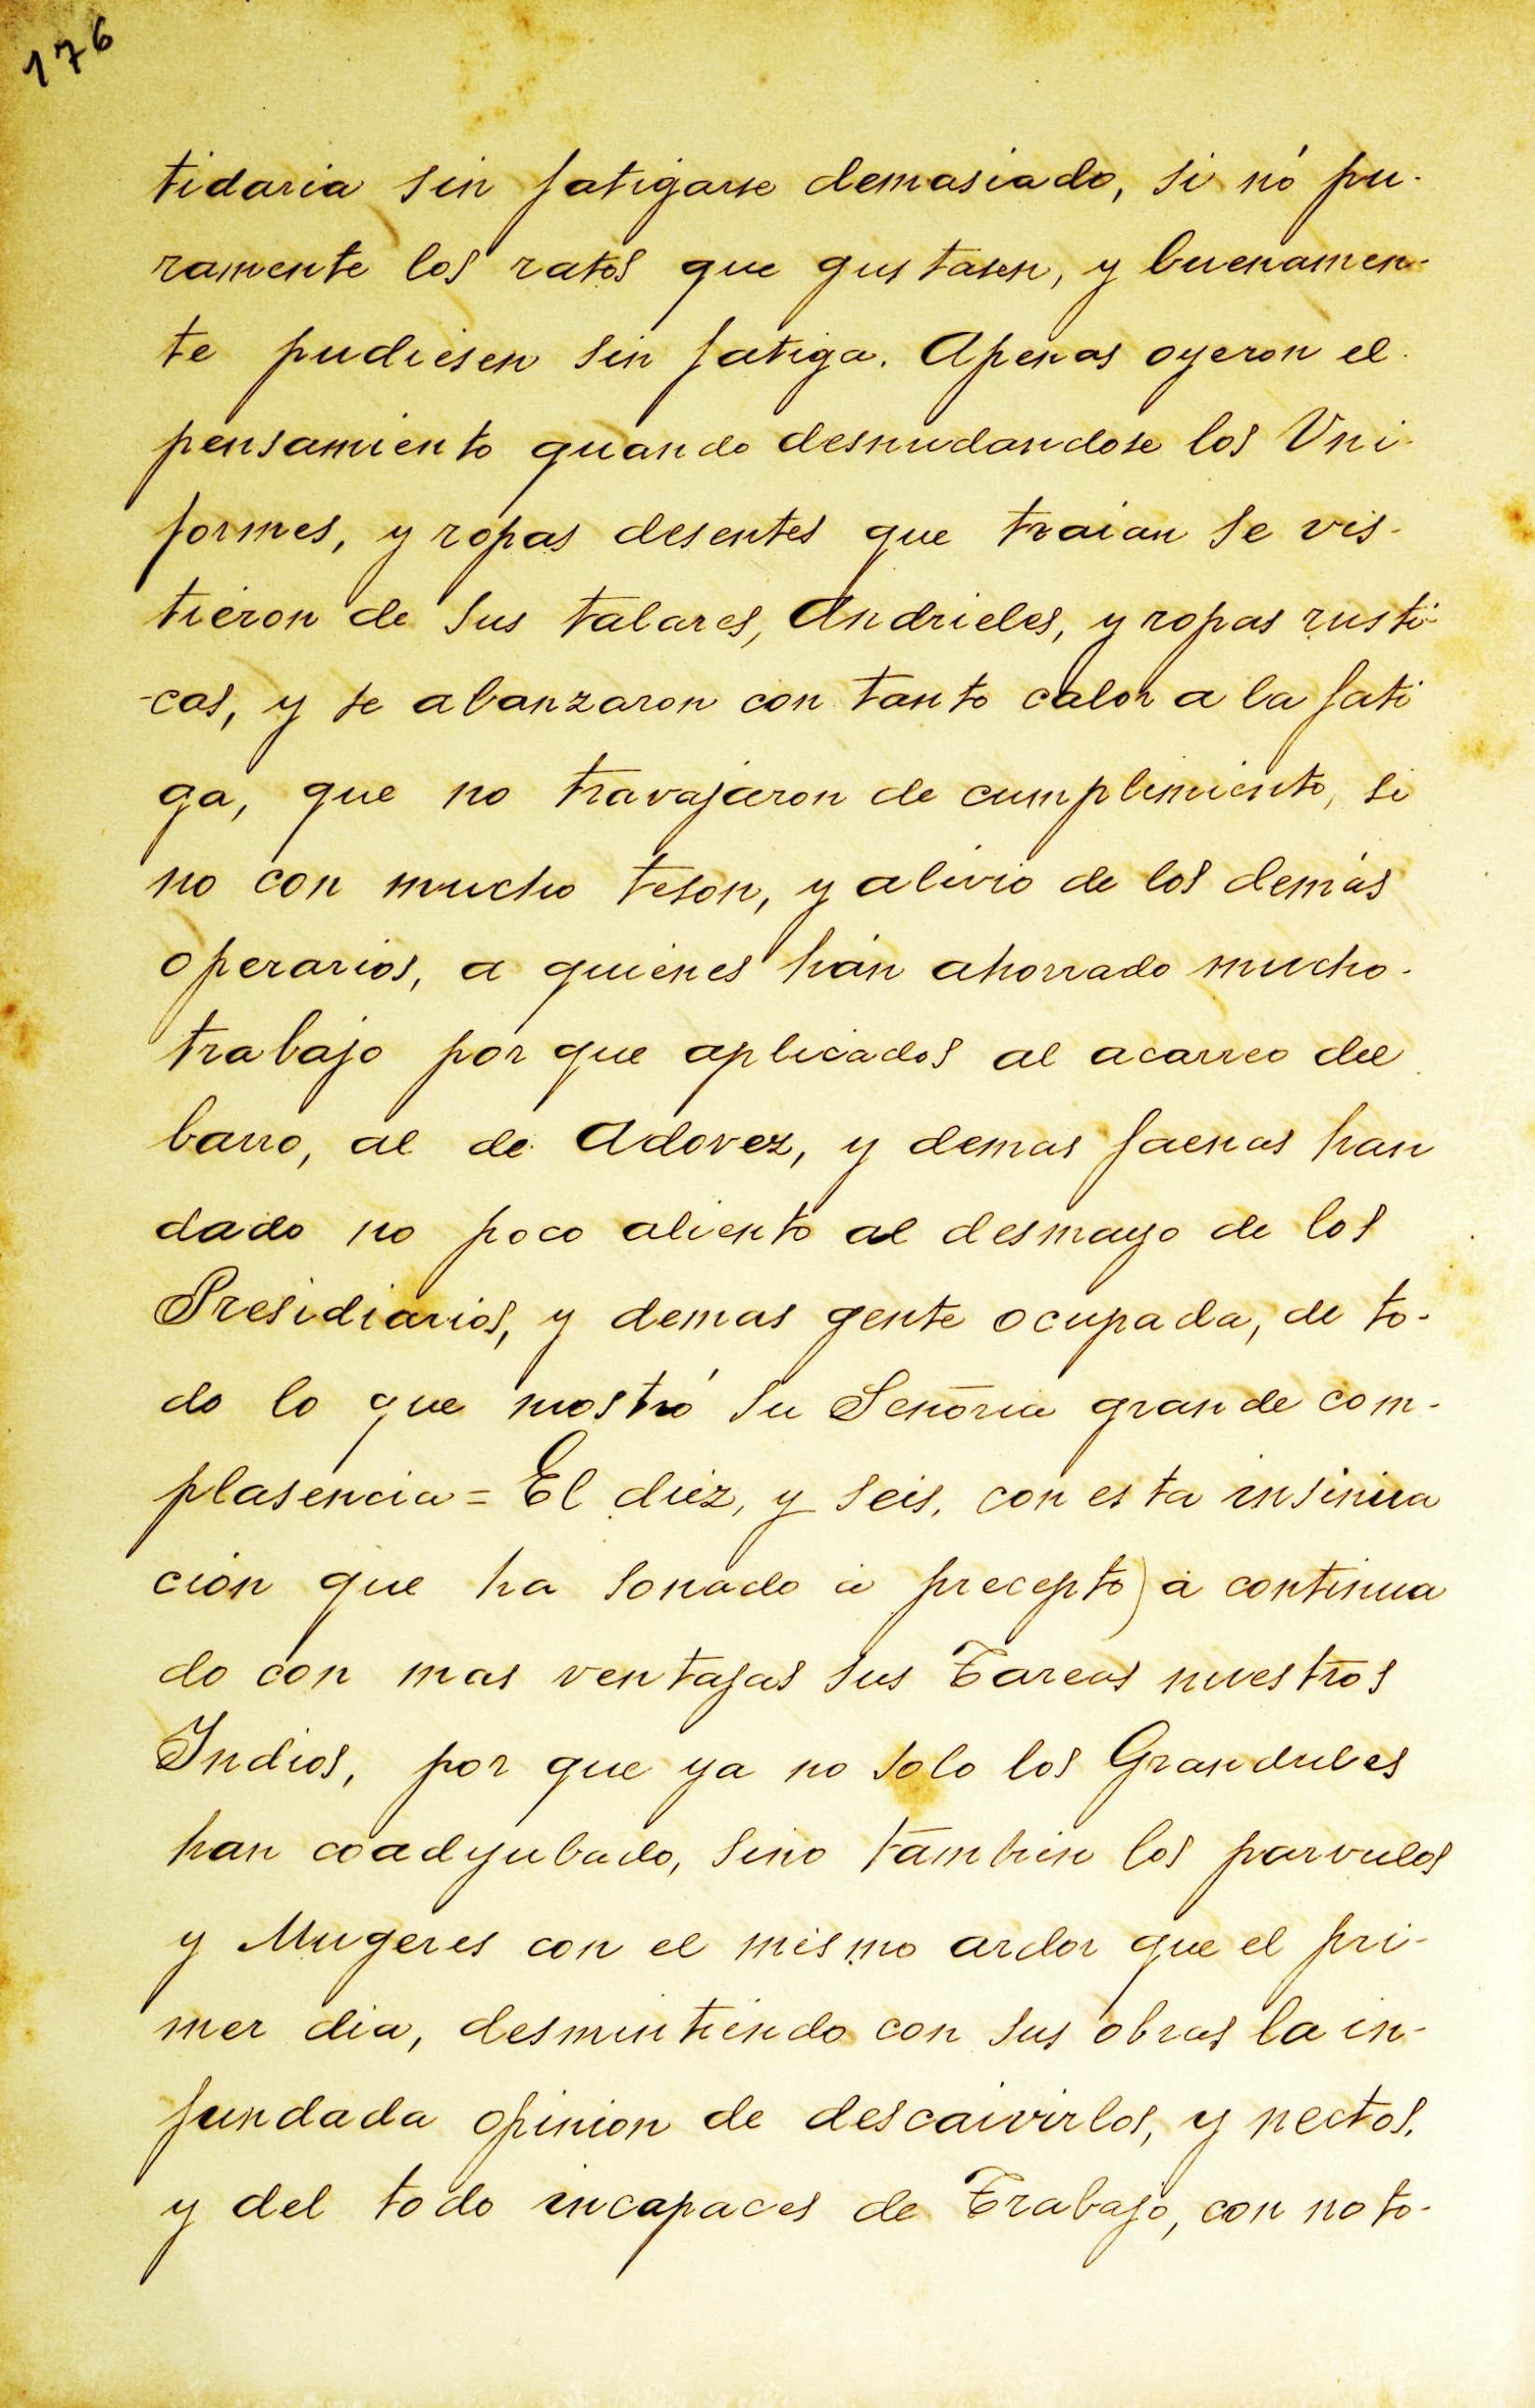 176
tidaria sin fatigarse demasiado, si nó pu-
ramente los ratos que gustasen, y buenamen-
te pudiesen sin fatiga. Apenas oyeron el
pensamiento quando desnudandose los Vni-
formes, y ropas desentes que traian se vis-
tieron de sus talares, Andrieles, y ropas rusti-
-cas, y se abanzaron con tanto calor a la fati
ga, que no travajaron de cumplimiento, si
no con mucho teson, y alivio de los demás
operarios, a quienes hán ahorrado mucho-
trabajo por que aplicados al acarreo del
barro, al de Adovez, y demas faenas han
dado no poco aliento al desmayo de los
Presidiarios, y demas gente ocupada, de to-
do lo que mostró su Señoria grande com-
plasencia = El diez, y seis, con esta insinua
cion que ha sonado á precepto) á continua
do con mas ventajas sus Tareas nuestros
Indios, por que ya no solo los Grandules
han coadyubado, sino tambien los parvulos
y Mugeres con el mismo ardor que el pri-
mer dia, desmintiendo con sus obras la in-
fundada opinion de descaivirlos, y nectos,
y del todo incapaces de Trabajo, con noto-